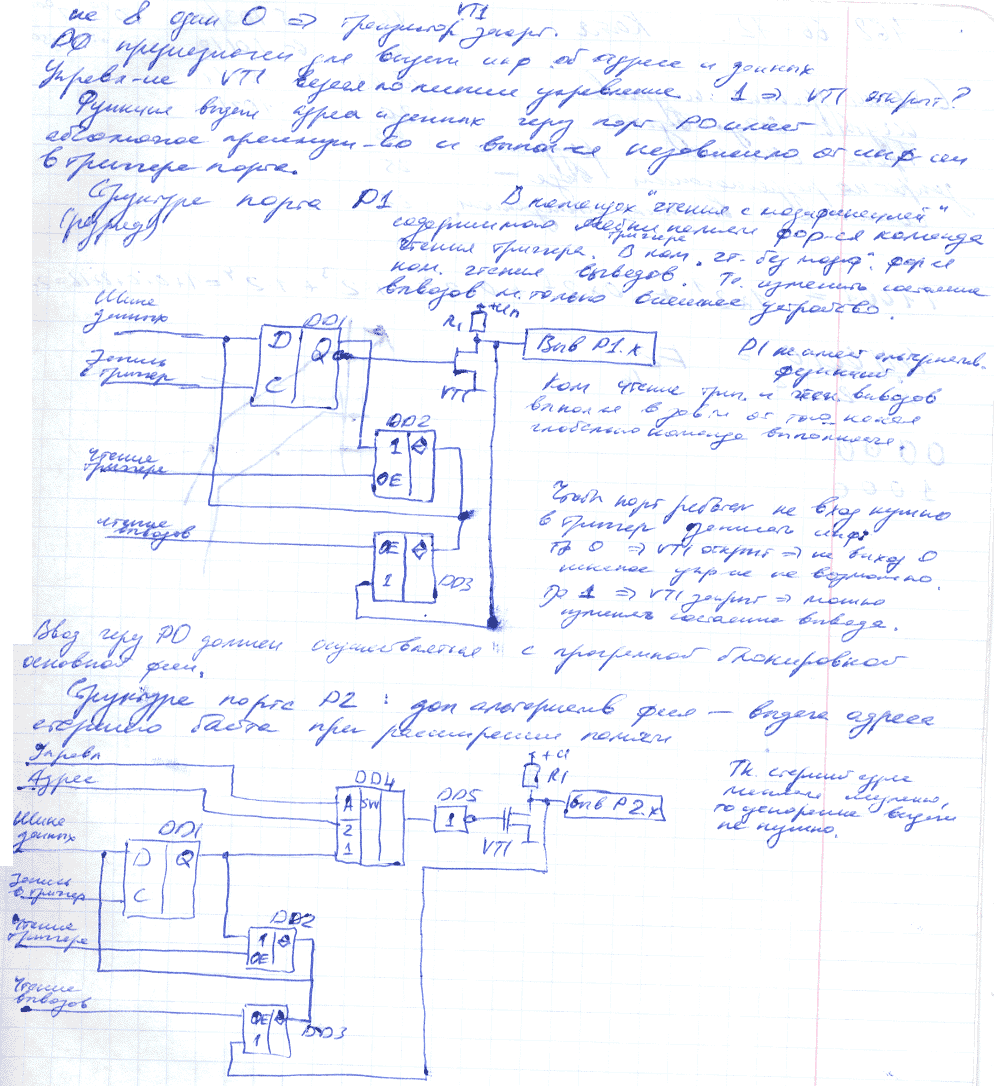 не в один 0 => транзистор VT1 закрт.
P0 предназначен для выдачи инф об адресе и данных
Управл-ие VT1 ведется по линии управление : 1 => VT1 открыт?
Функция выдачи адреса и данных через порт P0 имеет
абсолютное преимущ-во и выпол-ся независимо от инф-ии
в триггере порта.
Структура порта P1
(разряд)
В командах "чтения с модификацией"
содержимого памяти фор-ся команда
чтения триггера. В ком. "чт. без модиф." фор-ся
ком. чтения выводов. Т.о. изменить состояние
выводов м. только внешнее устройство.
Шина данных
Запись в триггер
Чтение триггера
Чтение выводов
DD1
D
Q
C
+Uп
R1
VT1
Выв P1.x
DD2
1
OE
OE
1
DD3
P1 не имеет альтернатив.
функций.
Ком чтение триг. и чтен выводов
выпол-ся в зав-и от того какая
команда выполняется.
Чтобы порт работал на вход нужно
в триггер записать инф:
0 => VT1 открыт => на выход 0
упр-ие не возможно.
1 => VT1 закрыт => можно
изменять состояние вывода.
Ввод через P0 должен осуществляться с програмной блокировкой
основной фции.
Структура порта P2 : доп альтернатив фция — выдача адреса
старшего байта при расширении памяти
Управл
Адрес
Шина данных
Запись в триггер
Чтение триггера
Чтение выводов
DD1
D
Q
C
DD4
A
SW
2
1
DD5
1
+U
R1
VT1
Выв P2.x
DD2
1
OE
OE
1
DD3
Тк. старший адрес
меняется медленно,
то ускорение выдачи
не нужно.